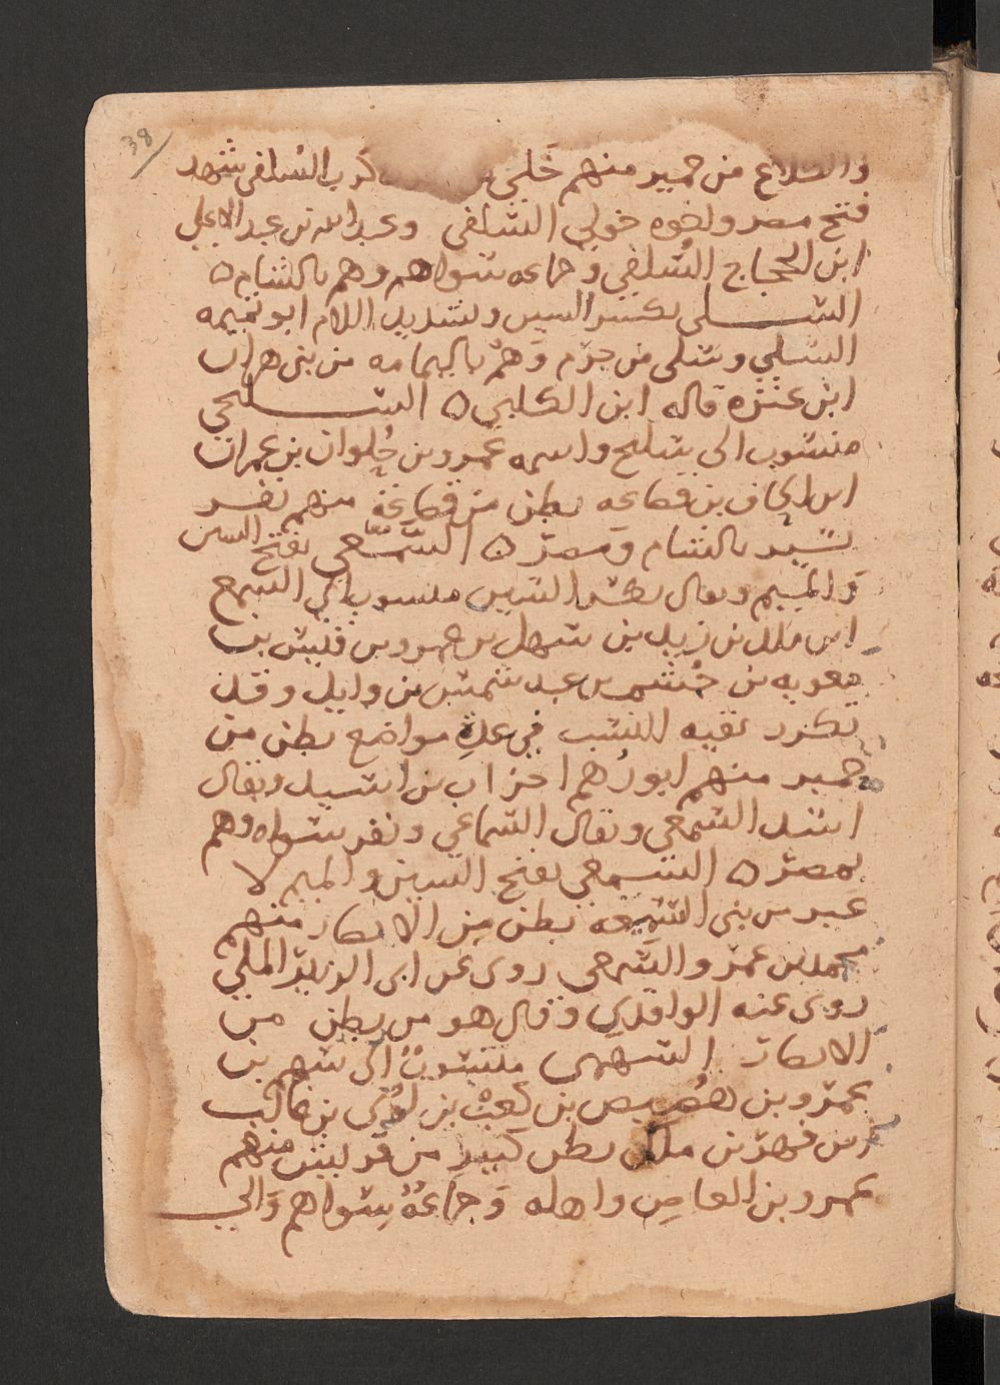 38
والسلاع من حمير منهم خلي كرب السلفي شهد
فتح مصر واخوه خولي السلفي وعبد الله بن عبد الاعلى
ابن الحجاج السلفي وجماعه سواهم وهم بالشام ه
السلي بكسر السين وتشديد اللام ابو تميمه
السلي وسلى من جرم وهم باليمامه من بني هزان
ابن عنزه قاله ابن الكلبي ه السليحي
منسوب الى سليح واسمه عمرو بن حلوان بن عمران
ابن الحاف بن قضاعه بطن من قضاعة منهم نفر
يسير بالشام ومصر ه السمعي بفتح السين
والميم ويقال بكسر السين منسوب الى السمع
ابن ملك بن زيد بن سهل بن عمرو بن قيس بن
معويه بن جشم بن عبد شمس بن وايل وقد
تكرر بقيه النسب في عدة مواضع بطن من
حمير منهم ابو رهم احزاب بن اسيد ويقال
اسد السمعي ويقال السماعي ونفر سواه وهم
بمصر ه السمعي بفتح السين والميم لا
غير من بني السميعه بطن من الانصار منهم
محمد بن عمرو السمعي روى عن ابي الزبير المكي
روى عنه الواقدي وقال هو من بطن من
الانصار السهمي منسوب الى سهم بن
عمرو بن هصيص بن كعب بن لؤي بن غالب
بن فهر بن ملك بطن كبير من قريش منهم
عمرو بن العاص واهله وجماعة سواهم والي